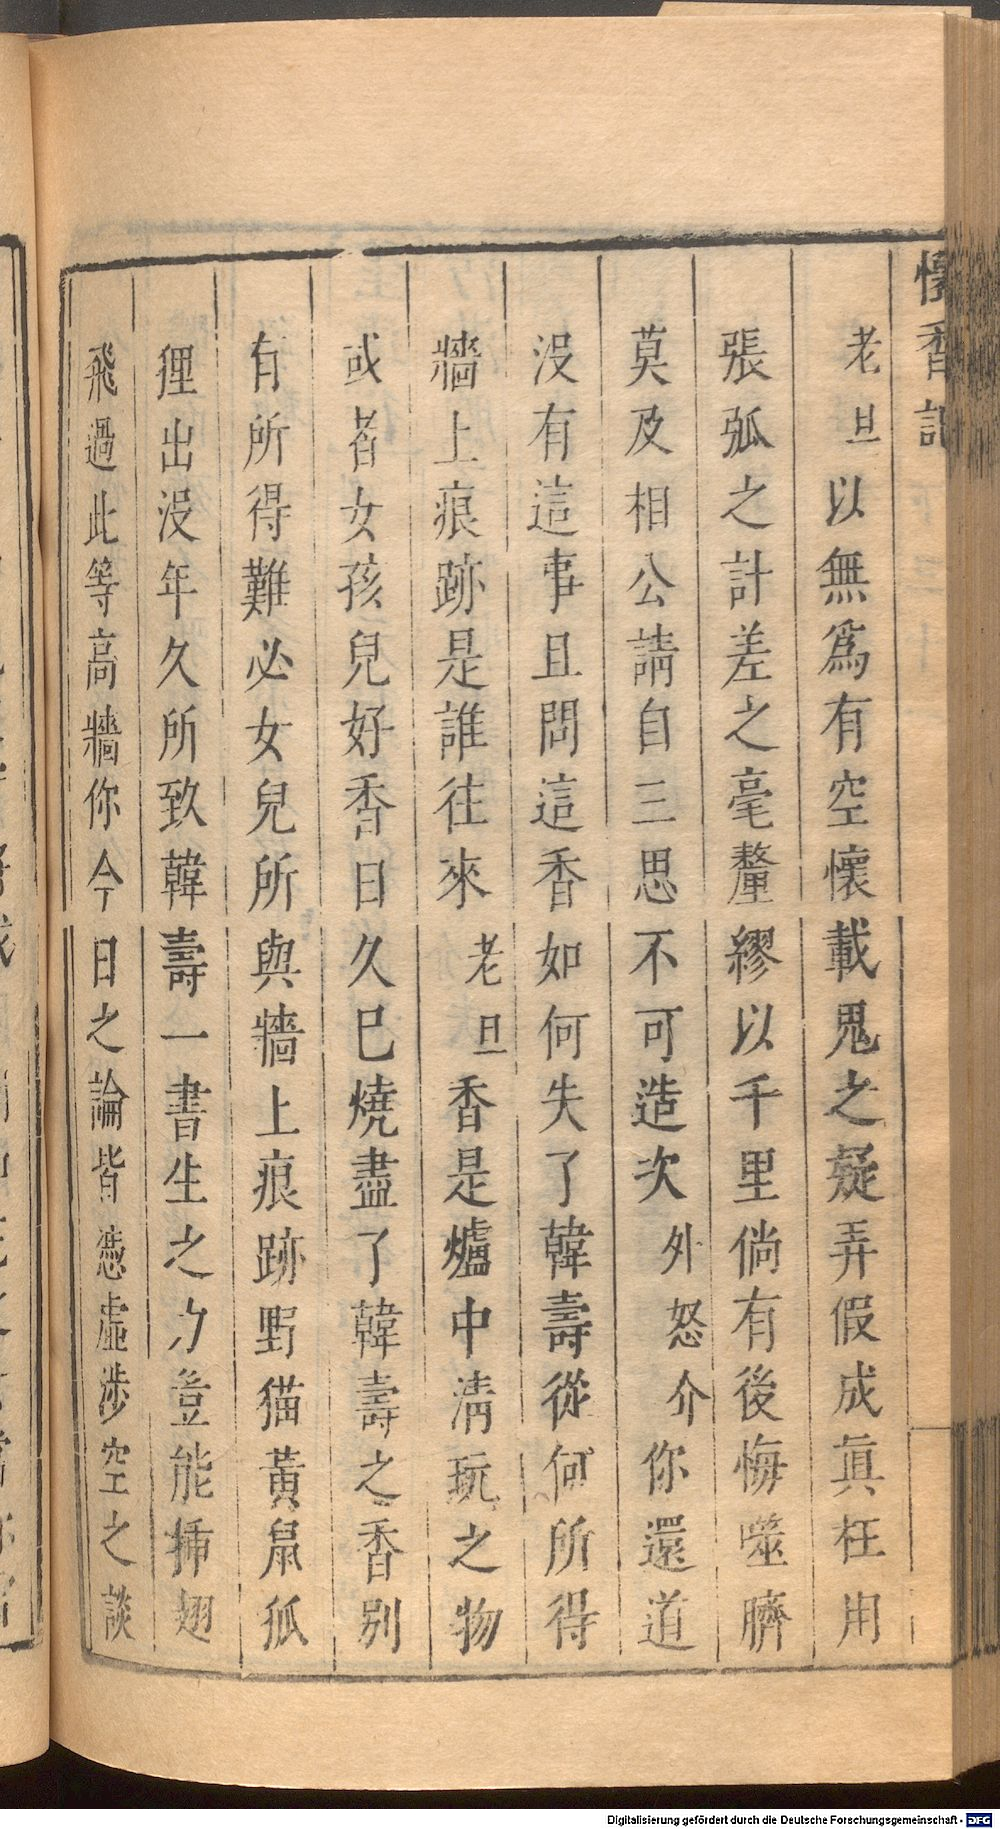 懷香記
老旦以無爲有空懷載鬼之疑弄假成眞枉用
張弧之計差之毫釐繆以千里倘有後悔噬臍
莫及相公請自三思不可造次外怒介你還道
没有這事且問這香如何失了韓壽從何所得
牆上痕跡是誰往來老旦香是爐中淸玩之物
或者女孩兒好香日久已燒盡了韓壽之香别
有所得難必女兒所與牆上痕跡野猫黃鼠狐
狸出没年久所致韓壽一書生之力豈能揷翅
飛過此等高牆你今日之論皆憑虛涉空之談
Digitalisierung gefördert durch die Deutsche Forschungsgemeinschaft - DFG